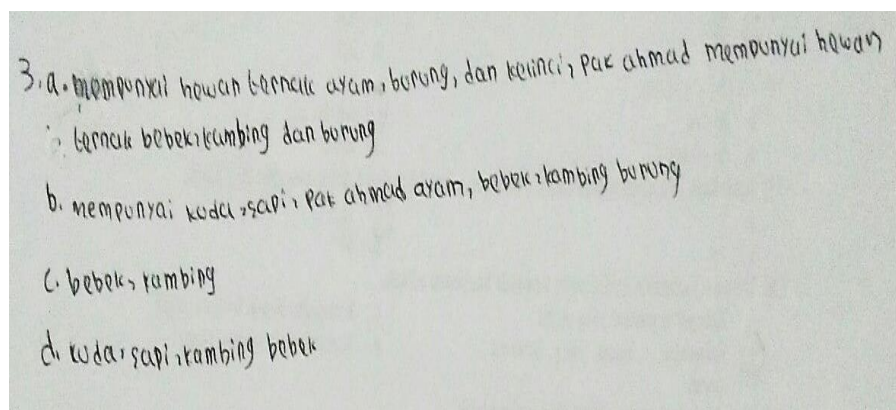 3. a. mempunyai hewan ternak ayam, burung, dan kelinci, pak ahmad mempunyai hewan
ternak bebek, kambing dan burung
b. mempunyai kuda, sapi, pak ahmad ayam, bebek, kambing burung
c. bebek, kambing
d. kuda, sapi, kambing bebek